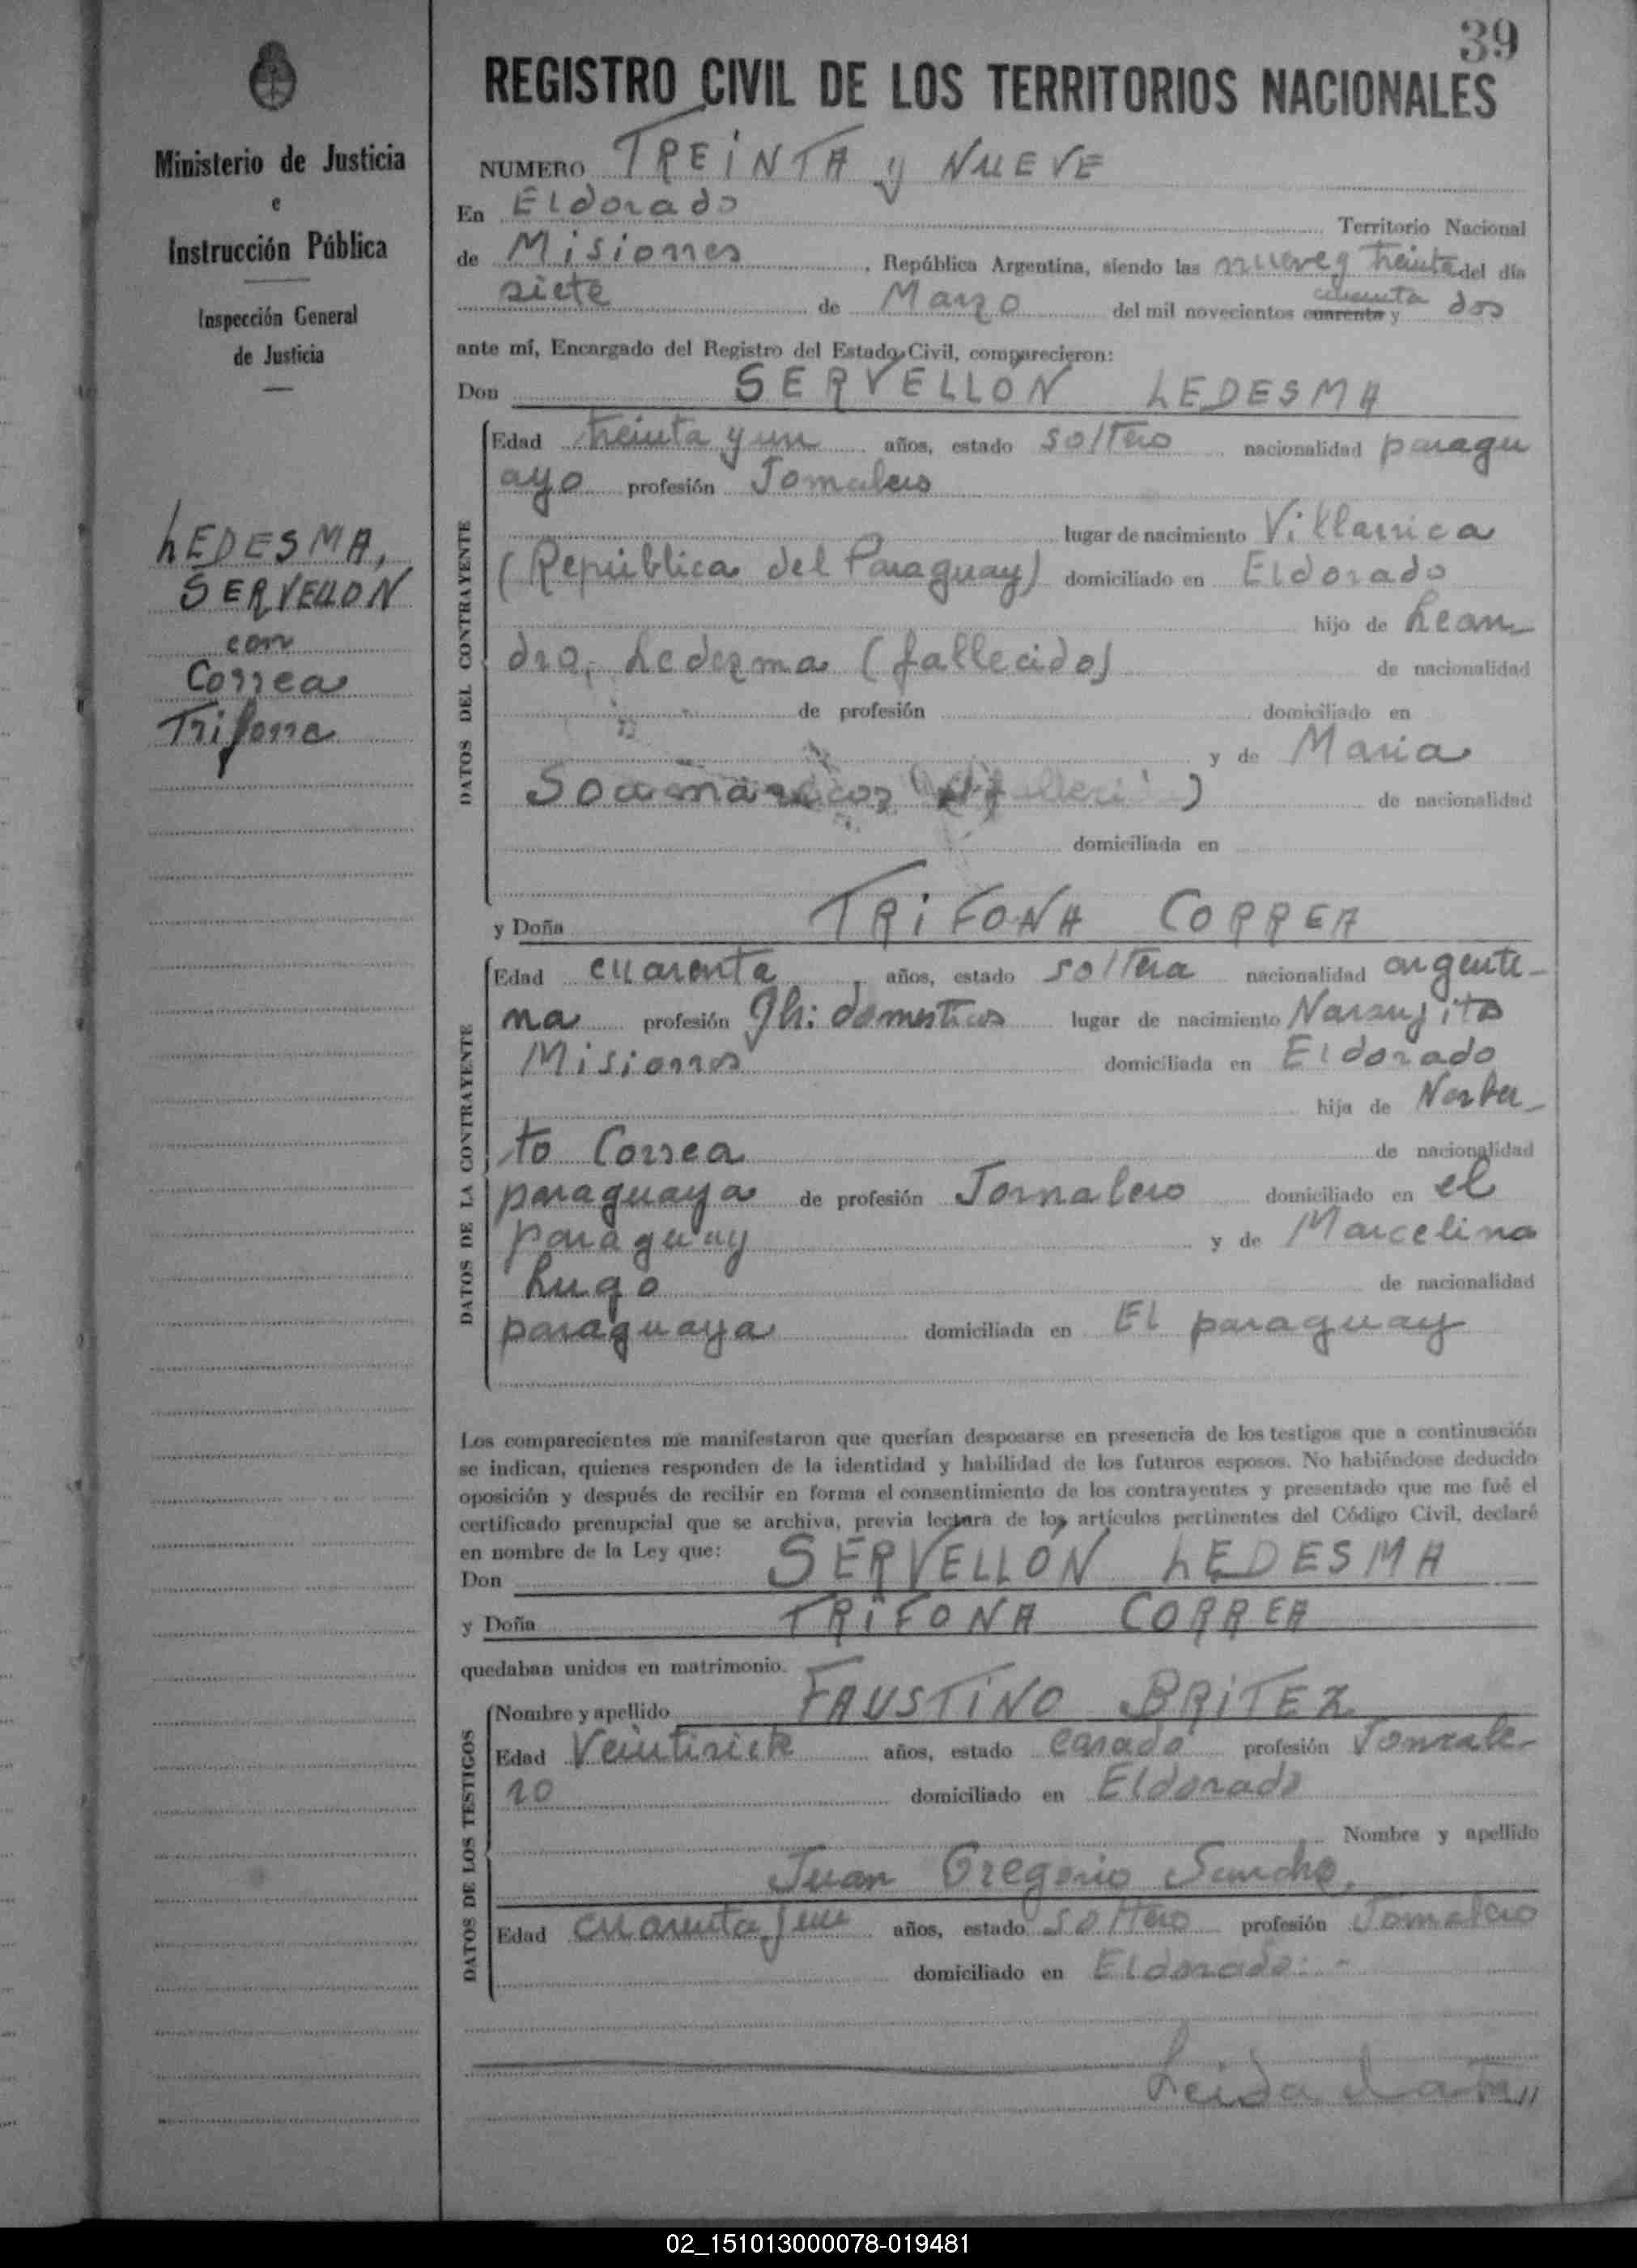 39
REGISTRO CIVIL DE LOS TERRITORIOS NACIONALES
Ministerio de Justicia
e
Instrucción Pública
Inspección General
de Justicia
LEDESMA,
SERVELLON
con
Correa
Trifona
NUMERO TREINTA y NUEVE
En Eldorado Territorio Nacional
de Misiones, República Argentina, siendo las nueve y treinta del día
siete de Marzo del mil novecientos cuarenta y cincuenta dos
ante mí, Encargado del Registro del Estado Civil, comparecieron:
Don SERVELLÓN LEDESMA
DATOS DEL CONTRAYENTE
Edad treinta y un años, estado soltero nacionalidad paragu
ayo profesión Jornalero
lugar de nacimiento Villarrica
(República del Paraguay) domiciliado en Eldorado
hijo de Lean
dro, Ledezma (fallecido) de nacionalidad
de profesión domiciliado en
y de Maria
de nacionalidad
domiciliada en
y Doña TRIFONA CORREA
DATOS DE LA CONTRAYENTE
Edad cuarenta, años, estado soltera nacionalidad argenti-
na profesión Qh: domesticos lugar de nacimiento Naranjito
Misiones domiciliada en Eldorado
hija de Norber-
to Correa de nacionalidad
paraguaya de profesión Jornalero domiciliado en el
paraguay y de Marcelina
Lugo de nacionalidad
paraguaya domiciliada en El paraguay
Los comparecientes me manifestaron que querían desposarse en presencia de los testigos que a continuación
se indican, quienes responden de la identidad y habilidad de los futuros esposos. No habiéndose deducido
oposición y después de recibir en forma el consentimiento de los contrayentes y presentado que me fué el
certificado prenupcial que se archiva, previa lectura de los artículos pertinentes del Código Civil, declaré
en nombre de la Ley que:
Don SERVELLÓN LEDESMA
y Doña TRIFONA CORREA
quedaban unidos en matrimonio.
DATOS DE LOS TESTIGOS
Nombre y apellido FAUSTINO BRITEZ
Edad Veintisiete años, estado casado profesión Jornale-
ro domiciliado en Eldorado
Nombre y apellido
Juan Gregorio Sanchez
Edad cuarenta y un años, estado soltero profesión Jornalero
domiciliado en Eldorado: -
Leida el acta,,
02_151013000078-019481